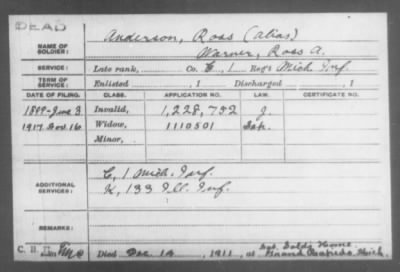 DEAD
NAME OF SOLDIER: Anderson, Ross (Alias)
Warner, Ross A.
SERVICE: Late rank, Co. C, 1 Reg't Mich. Inf.
TERM OF SERVICE: Enlisted , 1 Discharged , 1
DATE OF FILING. CLASS. APPLICATION NO. LAW. CERTIFICATE NO.
June 3 Invalid, 1,228,752 J.
1917 Nov. 16 Widow, 1110501
Minor,
ADDITIONAL SERVICES: C, 1 Mich. Inf.
K, 133 Ill. Inf.
REMARKS:
Sol. Home
Died Dec. 14, 1911, at Grand Rapids Mich.